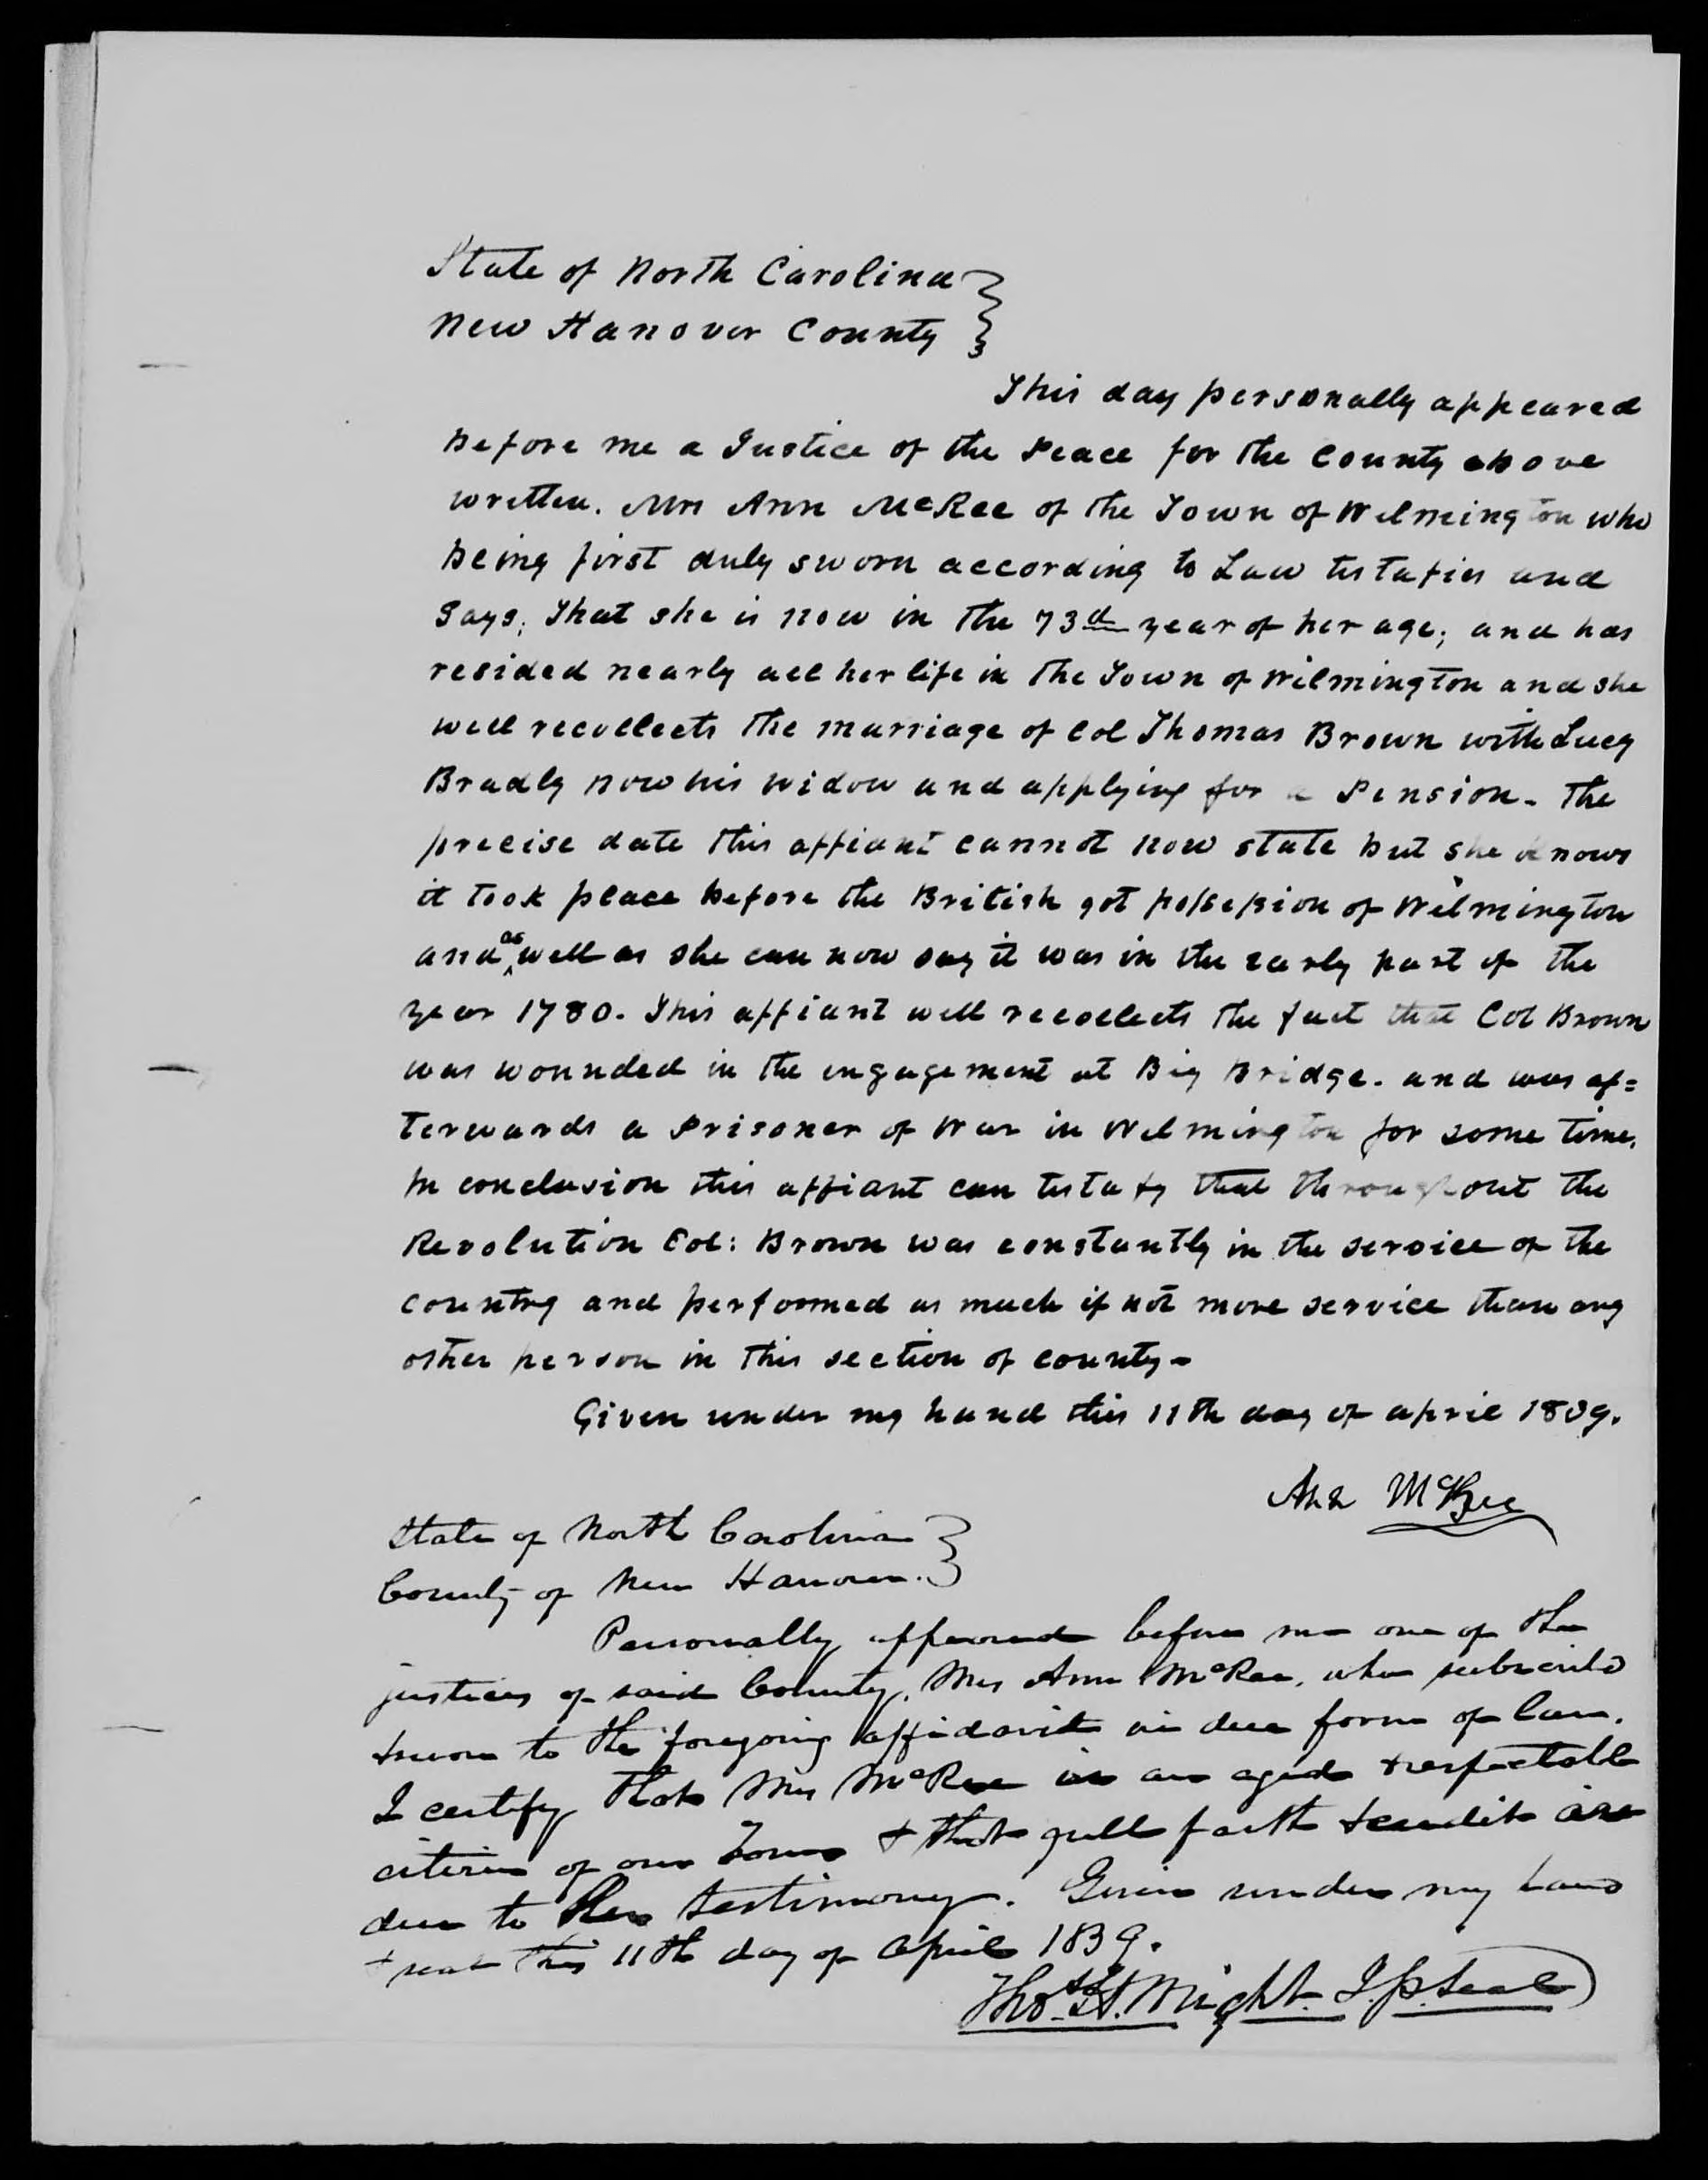 State of North Carolina }
New Hanover County }
This day personally appeared
before me a Justice of the Peace for the County above
written. Mrs Ann McRee of the Town of Wilmington who
being first duly sworn according to Law testafies and
Says, That she is now in the 73d year of her age, and has
resided nearly all her life in the Town of Wilmington and she
well recollects the marriage of Col Thomas Brown with Lucy
Bradly now his widow and applying for a Pension. The
precise date this affiant cannot now state but she knows
it took place before the British got possession of Wilmington
and as well as she can now say it was in the early part of the
year 1780. This affiant well recollects the fact that Col Brown
was wounded in the engagement at Big Bridge. and was af=
terwards a Prisoner of War in Wilmington for some time.
In conclusion this affiant can testafy that throughout the
Revolution Col: Brown was constantly in the service of the
country and performed as much if not more service than any
other person in this section of county-
Given under my hand this 11th day of april 1839.
Ann McRee
State of North Carolina }
County of New Hanover. }
Personally appeared before me one of the
justices of said County, Mrs Ann McRee, who subscribd
& sworn to the foregoing affidavit in due form of law.
I certify that Mrs McRee is an aged & respectable
citizen of our Town & that full faith & credit are
due to her testimony. Given under my hand
& seal this 11th day of April 1839.
Thos. H. Wright. J.P. Seal